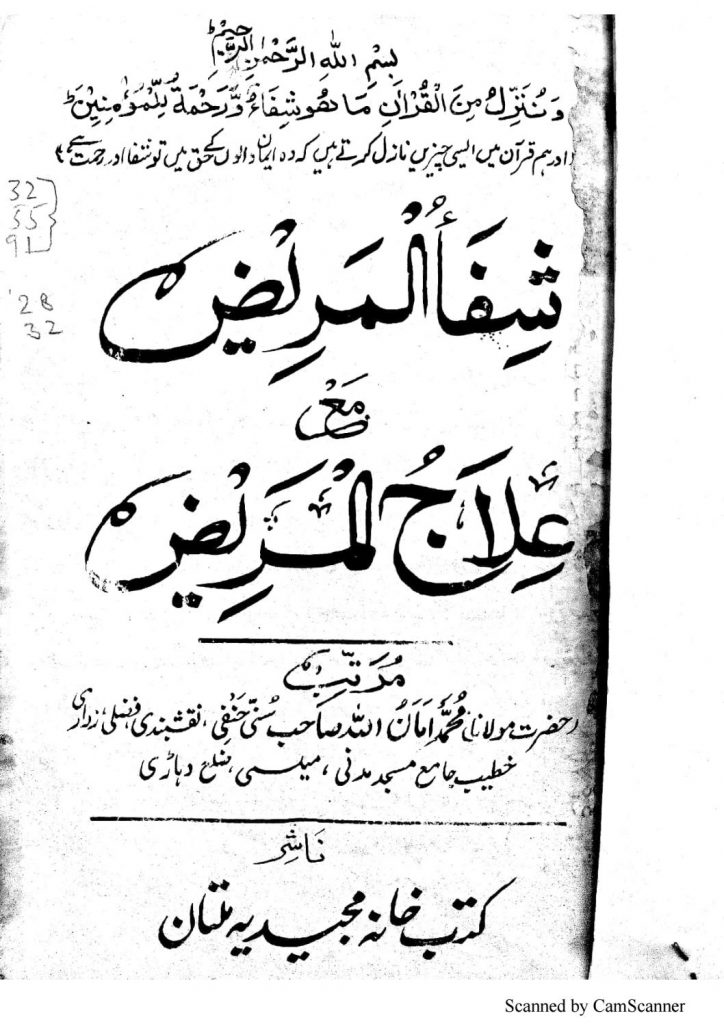 بِسْمِ اللهِ الرَّحْمٰنِ الرَّحِيْمِ ط
وَنُنَزِّلُ مِنَ الْقُرْاٰنِ مَا هُوَ شِفَاءٌ وَّرَحْمَةٌ لِّلْمُؤْمِنِيْنَ ط
(اور ہم قرآن میں ایسی چیزیں نازل کرتے ہیں کہ وہ ایمان والوں کے حق میں تو شفا اور رحمت ہے)
32
35
91
28
32
شِفَأُ الْمَرِيْض
مَعْ
عِلَاجُ الْمَرِيْض
مُرَتِّب
حضرت مولانا مُحَمَّد اَمَانُ اللّٰه صاحب سُنّی حَنْفِی، نقشبندی، فضلی،
خطیب جامع مسجد مدنی، میلسی، ضلع وہاڑی
نَاشِر
کتب خانہ مجیدیہ ملتان
Scanned by CamScanner